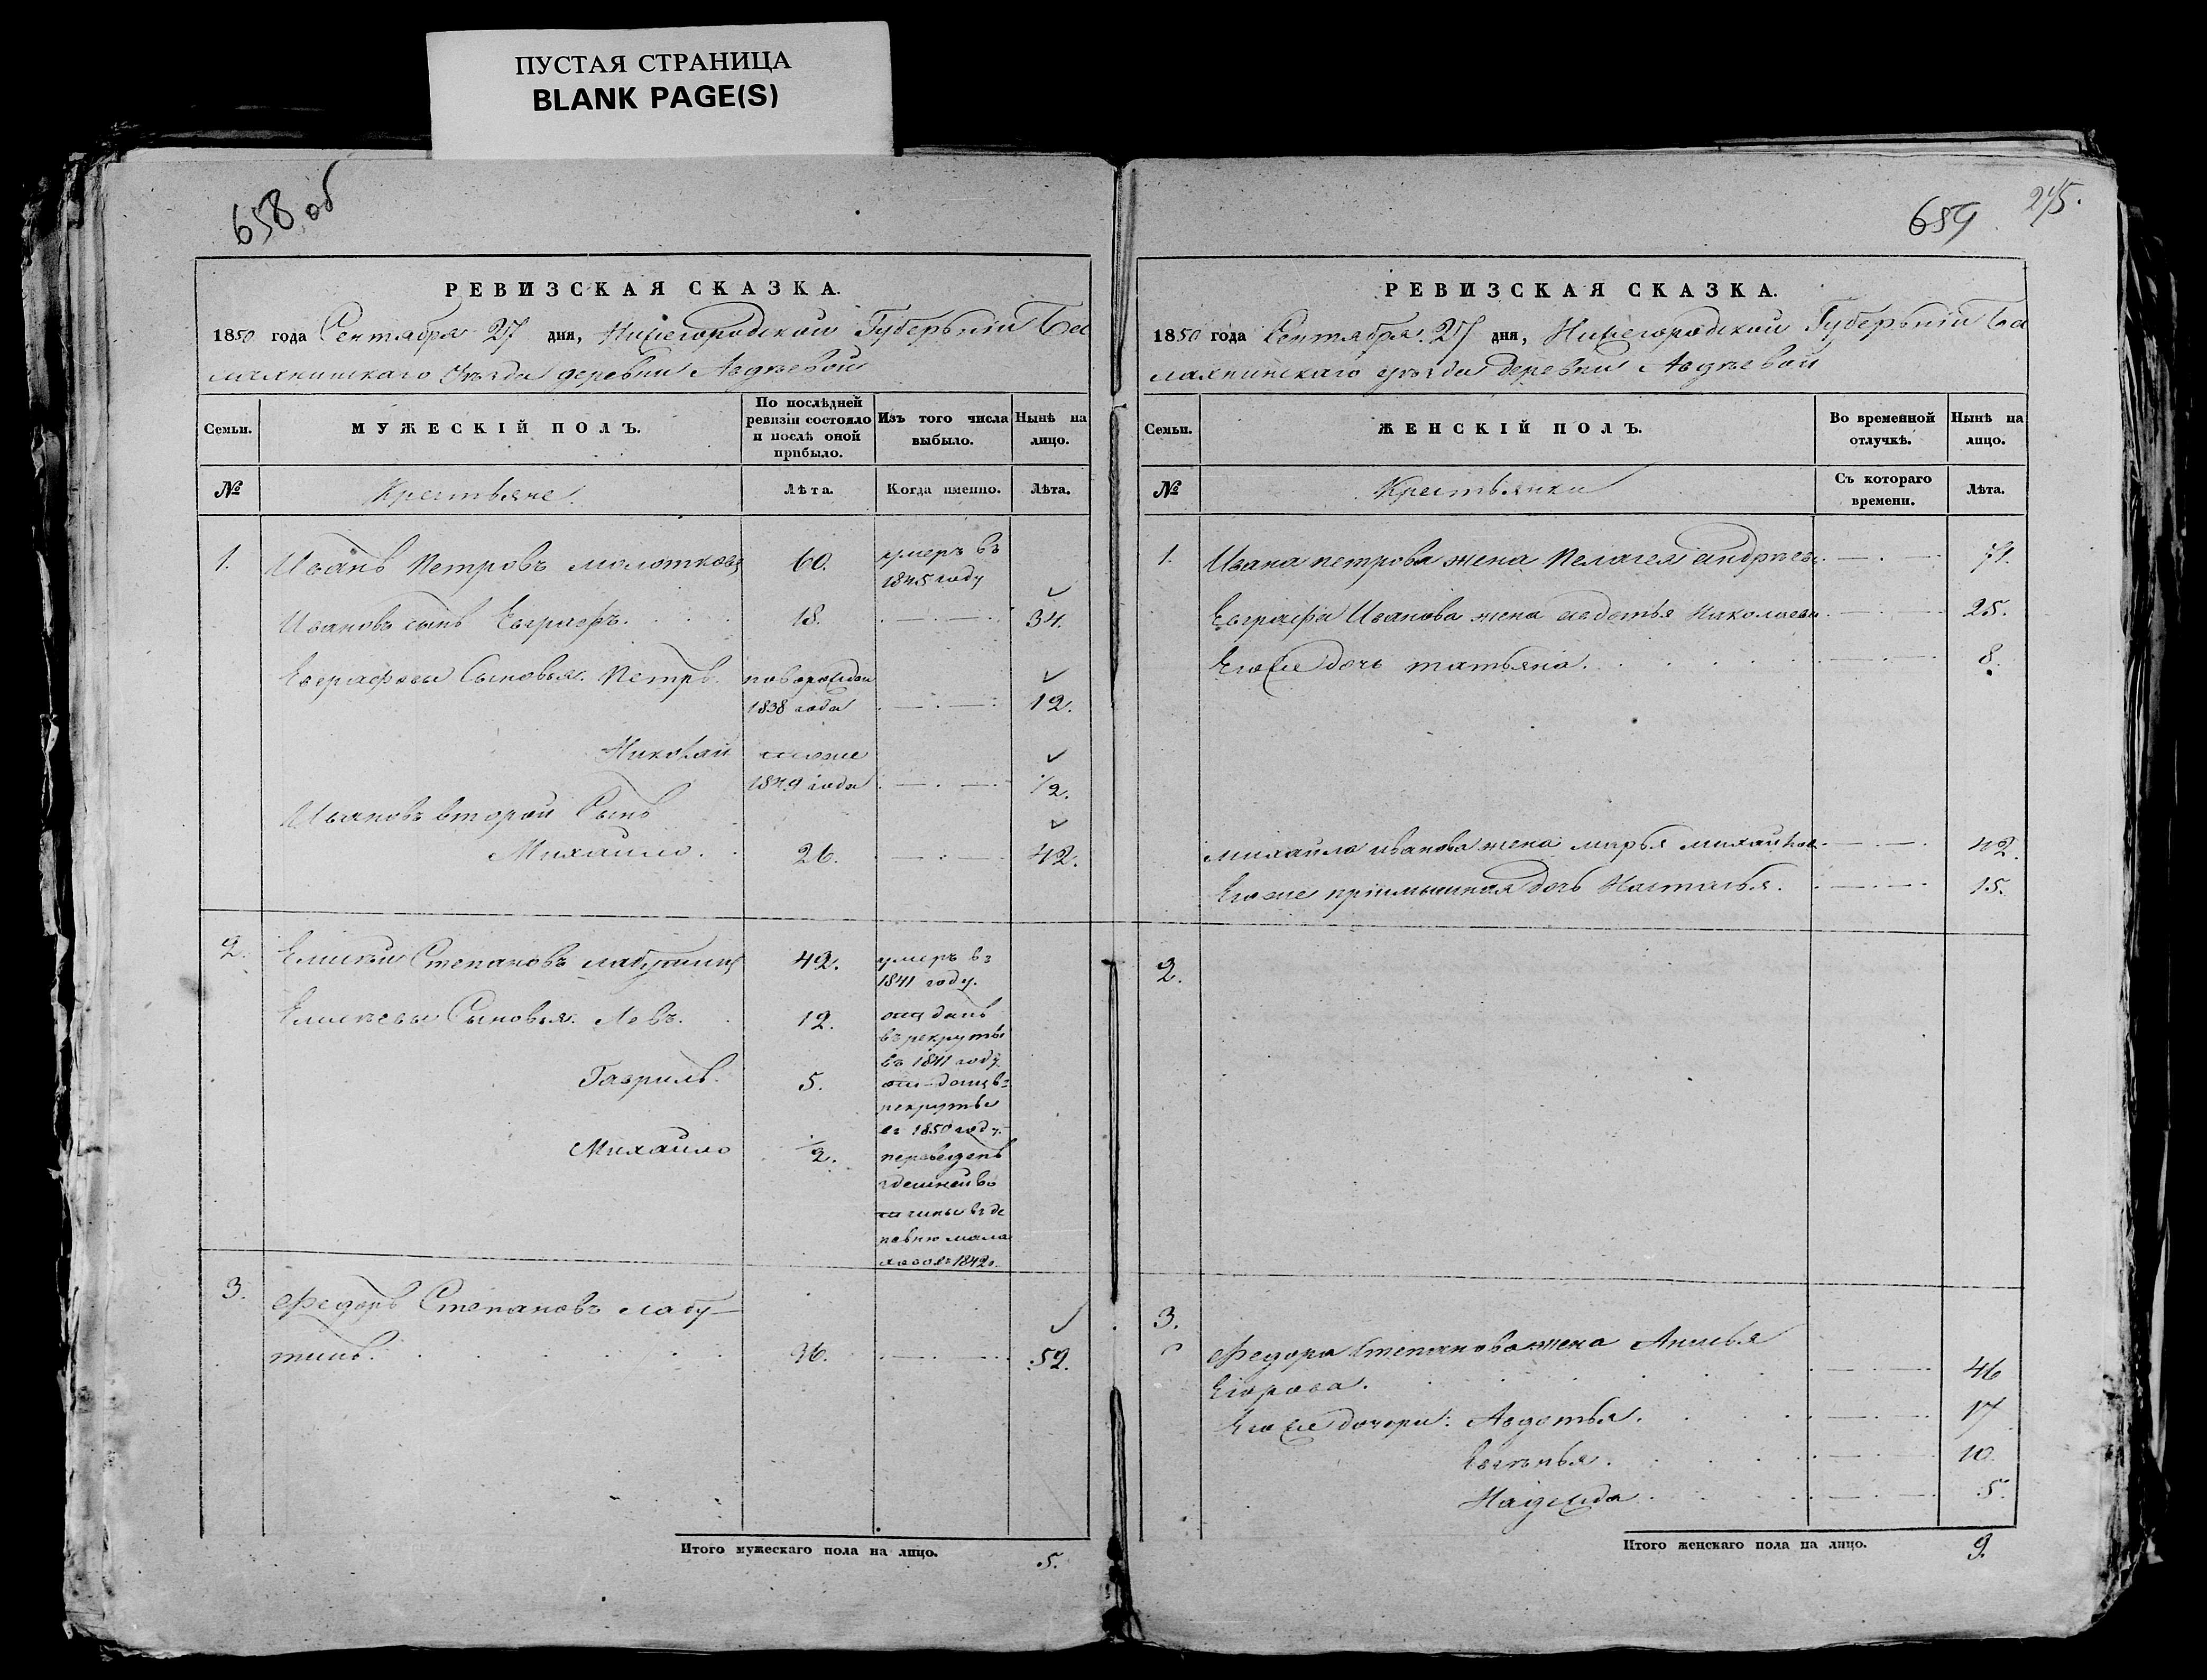 ПУСТАЯ СТРАНИЦА
BLANK PAGE(S)
658 об
РЕВИЗСКАЯ СКАЗКА.
1850 года Сентября 27 дня, Нижегородской Губернiи Ба
лахнинскаго уѣзда деревни Авдѣевой
Семьи.
МУЖЕСКІЙ ПОЛЪ.
По послѣдней
ревизіи состояло
и послѣ оной
прибыло.
Изъ того числа
выбыло.
Нынѣ на
лицо.
№
Крестьяне.
Лѣта.
Когда именно.
Лѣта.
1. Иванъ Петровъ Молотковъ 60. умеръ въ
1845 году
Ивановъ сынъ Евграфъ. 18. 34.
Евграфовы Сыновья. Петръ. новорожден
1838 года 12.
Николай тоже
1849 года 1/2.
Ивановъ второй Сынъ
Михайло. 26. 42.
2. Елисѣй Степановъ Лабутинъ 42. умеръ въ
1841 году.
Елисѣевы Сыновья. Левъ. 12. отданъ
въ рекруты
въ 1841 году.
Гаврилъ. 5. отданъ въ
рекруты
въ 1850 году.
Михайло 1/2. переведенъ
здешней во
тчины въ де
ревню
1842
3. Федоръ Степановъ Лабу-
тинъ. 36. 52.
Итого мужескаго пола на лицо. 5.
659 245.
РЕВИЗСКАЯ СКАЗКА.
1850 года Сентября 27 дня, Нижегородской Губернiи Ба
лахнинскаго уѣзда деревни Авдѣевой
Семьи.
ЖЕНСКІЙ ПОЛЪ.
Во временной
отлучкѣ.
Нынѣ на
лицо.
№
Крестьянки
Съ котораго
времени.
Лѣта.
1. Ивана Петрова жена Пелагея Андрѣев. 71.
Евграфа Иванова жена Авдотья Николаева 25.
Егоже дочь Татьяна. 8.
Михайла Иванова жена Марья Михайлов. 42.
Егоже прiимышная дочь Настасья. 15.
2.
3.
Федора Степанова жена Анисья
Егорова. 46
Егоже дочери: Авдотья. 17
Евгѣнья. 10.
Надежда. 5.
Итого женскаго пола на лицо. 9.